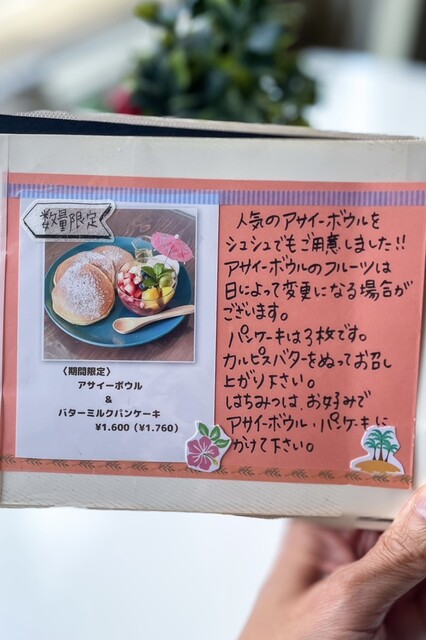 数量限定
〈期間限定〉
アサイーボウル
&
バターミルクパンケーキ
¥1.600（¥1.760）
人気のアサイーボウルを
シュシュでもご用意しました!!
アサイーボウルのフルーツは
日によって変更になる場合が
ございます。
パンケーキは3枚です。
カルピスバターをぬってお召し
上がり下さい。
はちみつは、お好みで
アサイーボウル・パンケーキに
かけて下さい。